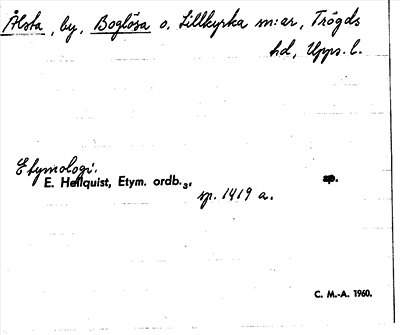 Ålsta, by, Boglösa o. Lillkyrka sn:ar, Trögds
hd, Upps. l.
Etymologi:
E. Hellquist, Etym. ordb.3, sp.
sp. 1419 a.
C. M.-A. 1960.